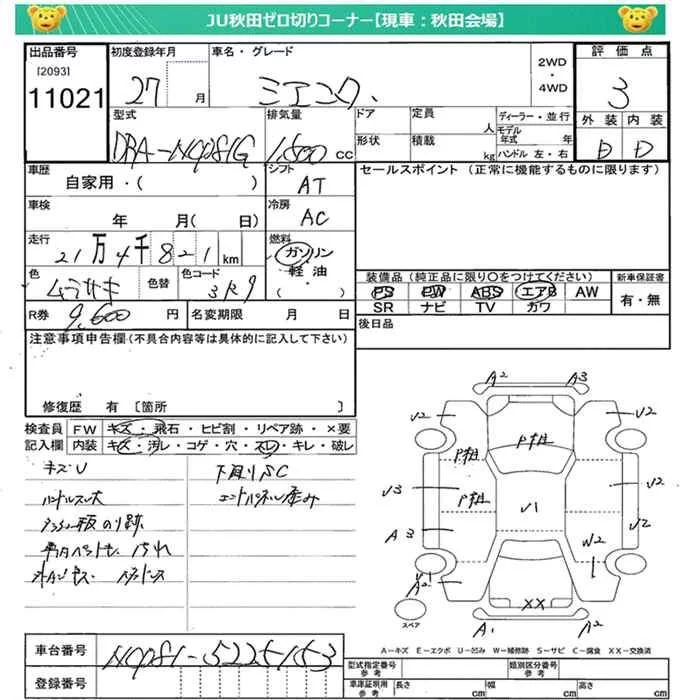 JU秋田ゼロ切りコーナー【現車：秋田会場】
出品番号 初度登録年月 車名・グレード 2WD・4WD 評価点
[2093]
11021 27 月 シエンタ 3
型式 排気量 ドア 定員 人 ディーラー・並行 外装 内装
DBA-NCP81G 1,500 cc 形状 積載 kg モデル年式 年 ハンドル 左・右 D D
車歴 シフト セールスポイント（正常に機能するものに限ります）
自家用・（ ） AT
車検 冷房
年 月（ 日） AC
走行 燃料
21万4千821km ガソリン
色 色替 色コード 軽油
ムラサキ 3R9 （ ）
装備品（純正品に限り○をつけてください） 新車保証書
PS PW ABS エアB AW 有・無
SR ナビ TV カワ
R券 9,600円 名変期限 月 日 後日品
注意事項申告欄（不具合内容等は具体的に記入して下さい）
修復歴 有 [箇所 ]
検査員 FW キズ・飛石・ヒビ割・リペア跡・×要
記入欄 内装 キズ・汚レ・コゲ・穴・スレ・キレ・破レ
キズU 下廻りSC
ハンドルスレ大
ダッシュ板のり跡
A2 A3
U2 U2
P柱
P柱
P柱
U3 U1 U2
A3 W2 U2
XX
スペア A1 A2
A－キズ E－エクボ U－凹み W－補修跡 S－サビ C－腐食 XX－交換済
車台番号 NCP81-5225153
登録番号
型式指定番号 参考 類別区分番号 参考
車庫証明用 参考 長さ cm 幅 cm 高さ cm